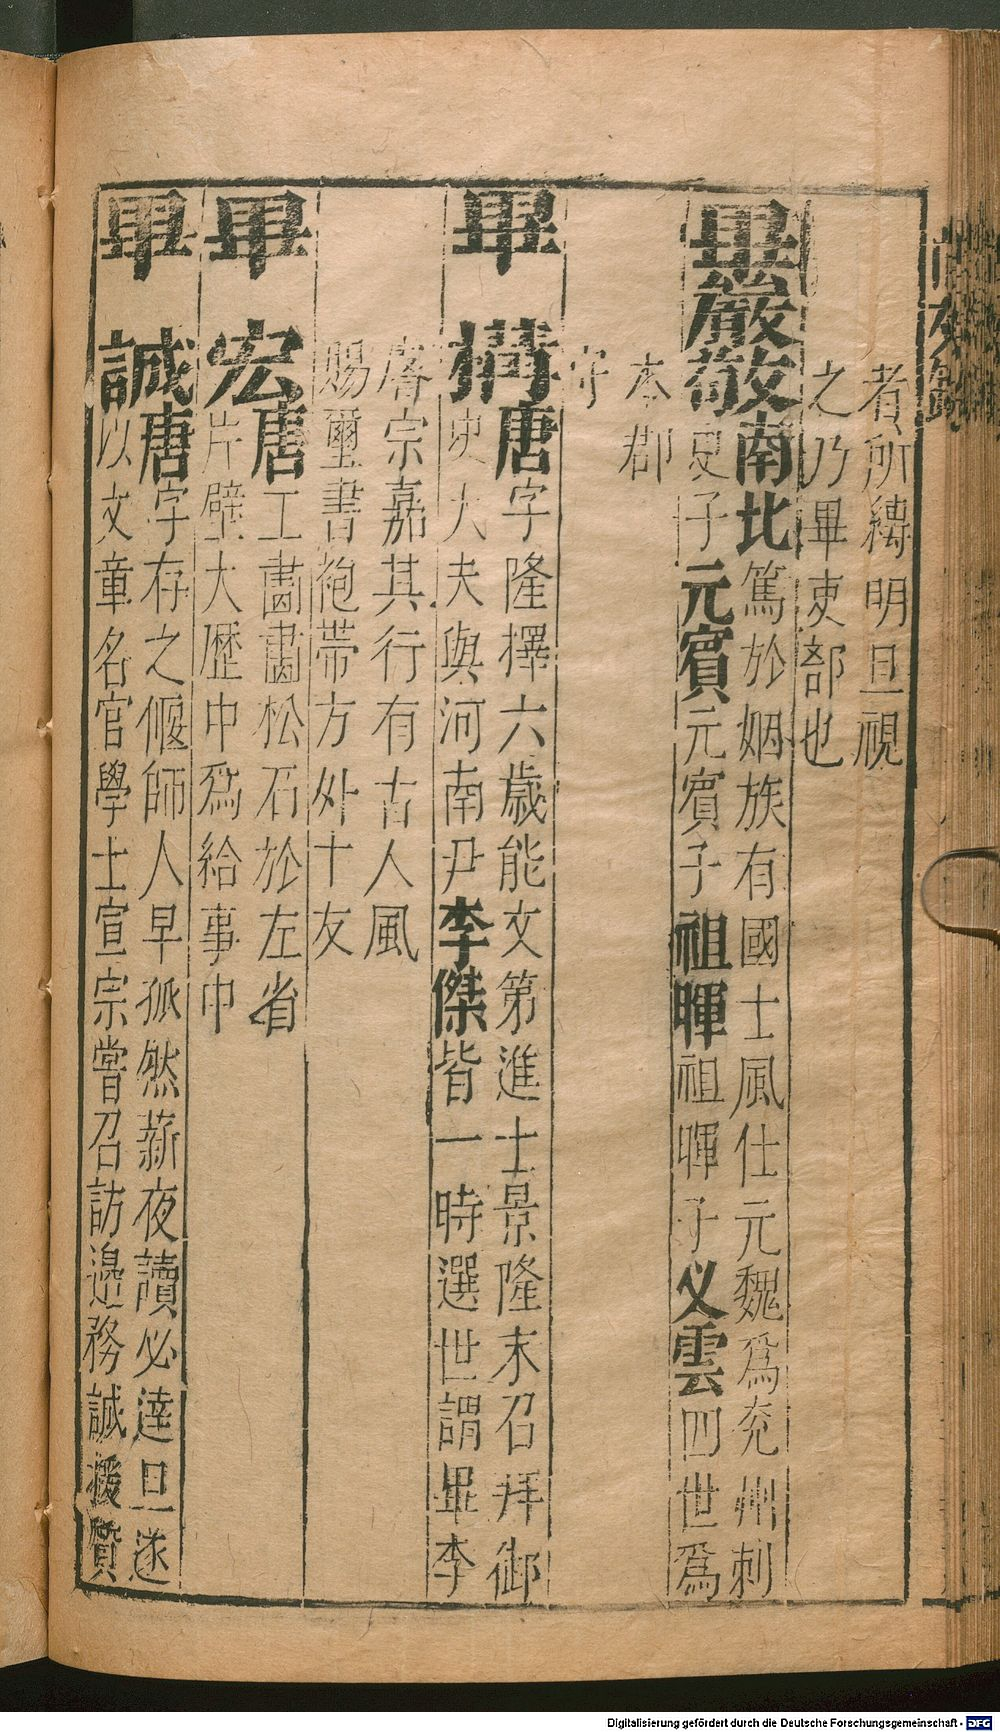 者所縛明旦視
之乃畢吏部也
畢嚴敬南北篤於姻族有國士風仕元魏爲兖州刺
史子元賓元賓子祖暉祖暉子义雲四世爲
本郡
守
畢構唐字隆擇六歲能文第進士景隆末召拜御
史大夫與河南尹李傑皆一時選世謂畢李
睿宗嘉其行有古人風
賜璽書袍帶方外十友
畢宏唐工畵畵松石於左省
片壁大歷中爲給事中
畢諴唐字存之偃師人早孤然薪夜讀必達旦遂
以文章名官學士宣宗嘗召訪邊務諴援質
Digitalisierung gefördert durch die Deutsche Forschungsgemeinschaft - DFG